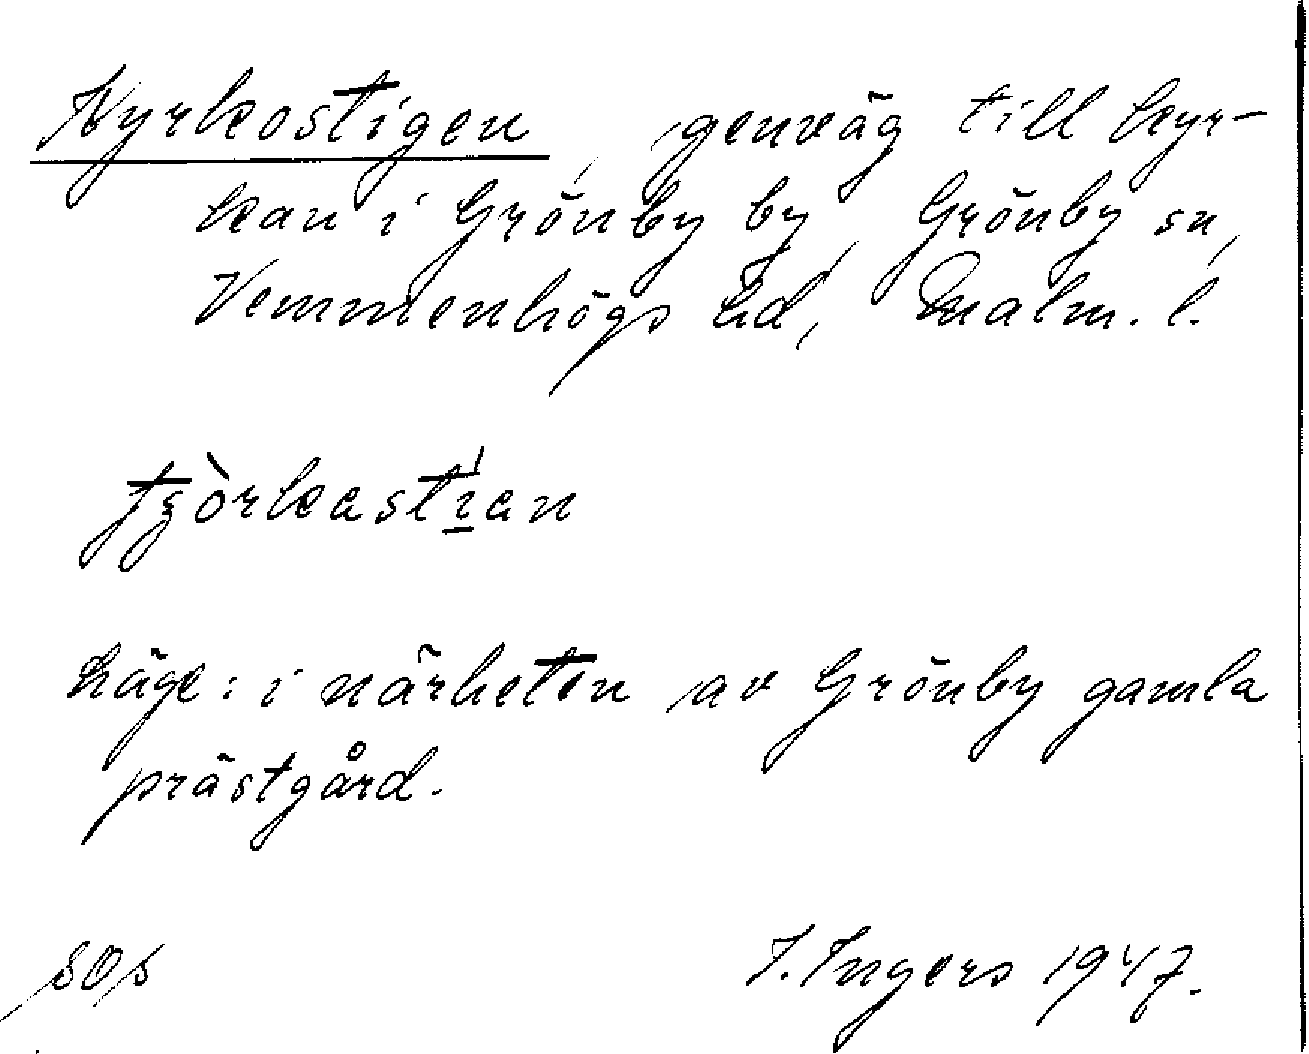 Kyrkostigen, genväg till kyr-
kan i Grönby by, Grönby sn,
Vemmenhögs hd, Malm. l.
tʒòrkastı̲́an
Läge: i närheten av Grönby gamla
prästgård.
I. Ingers 1947.